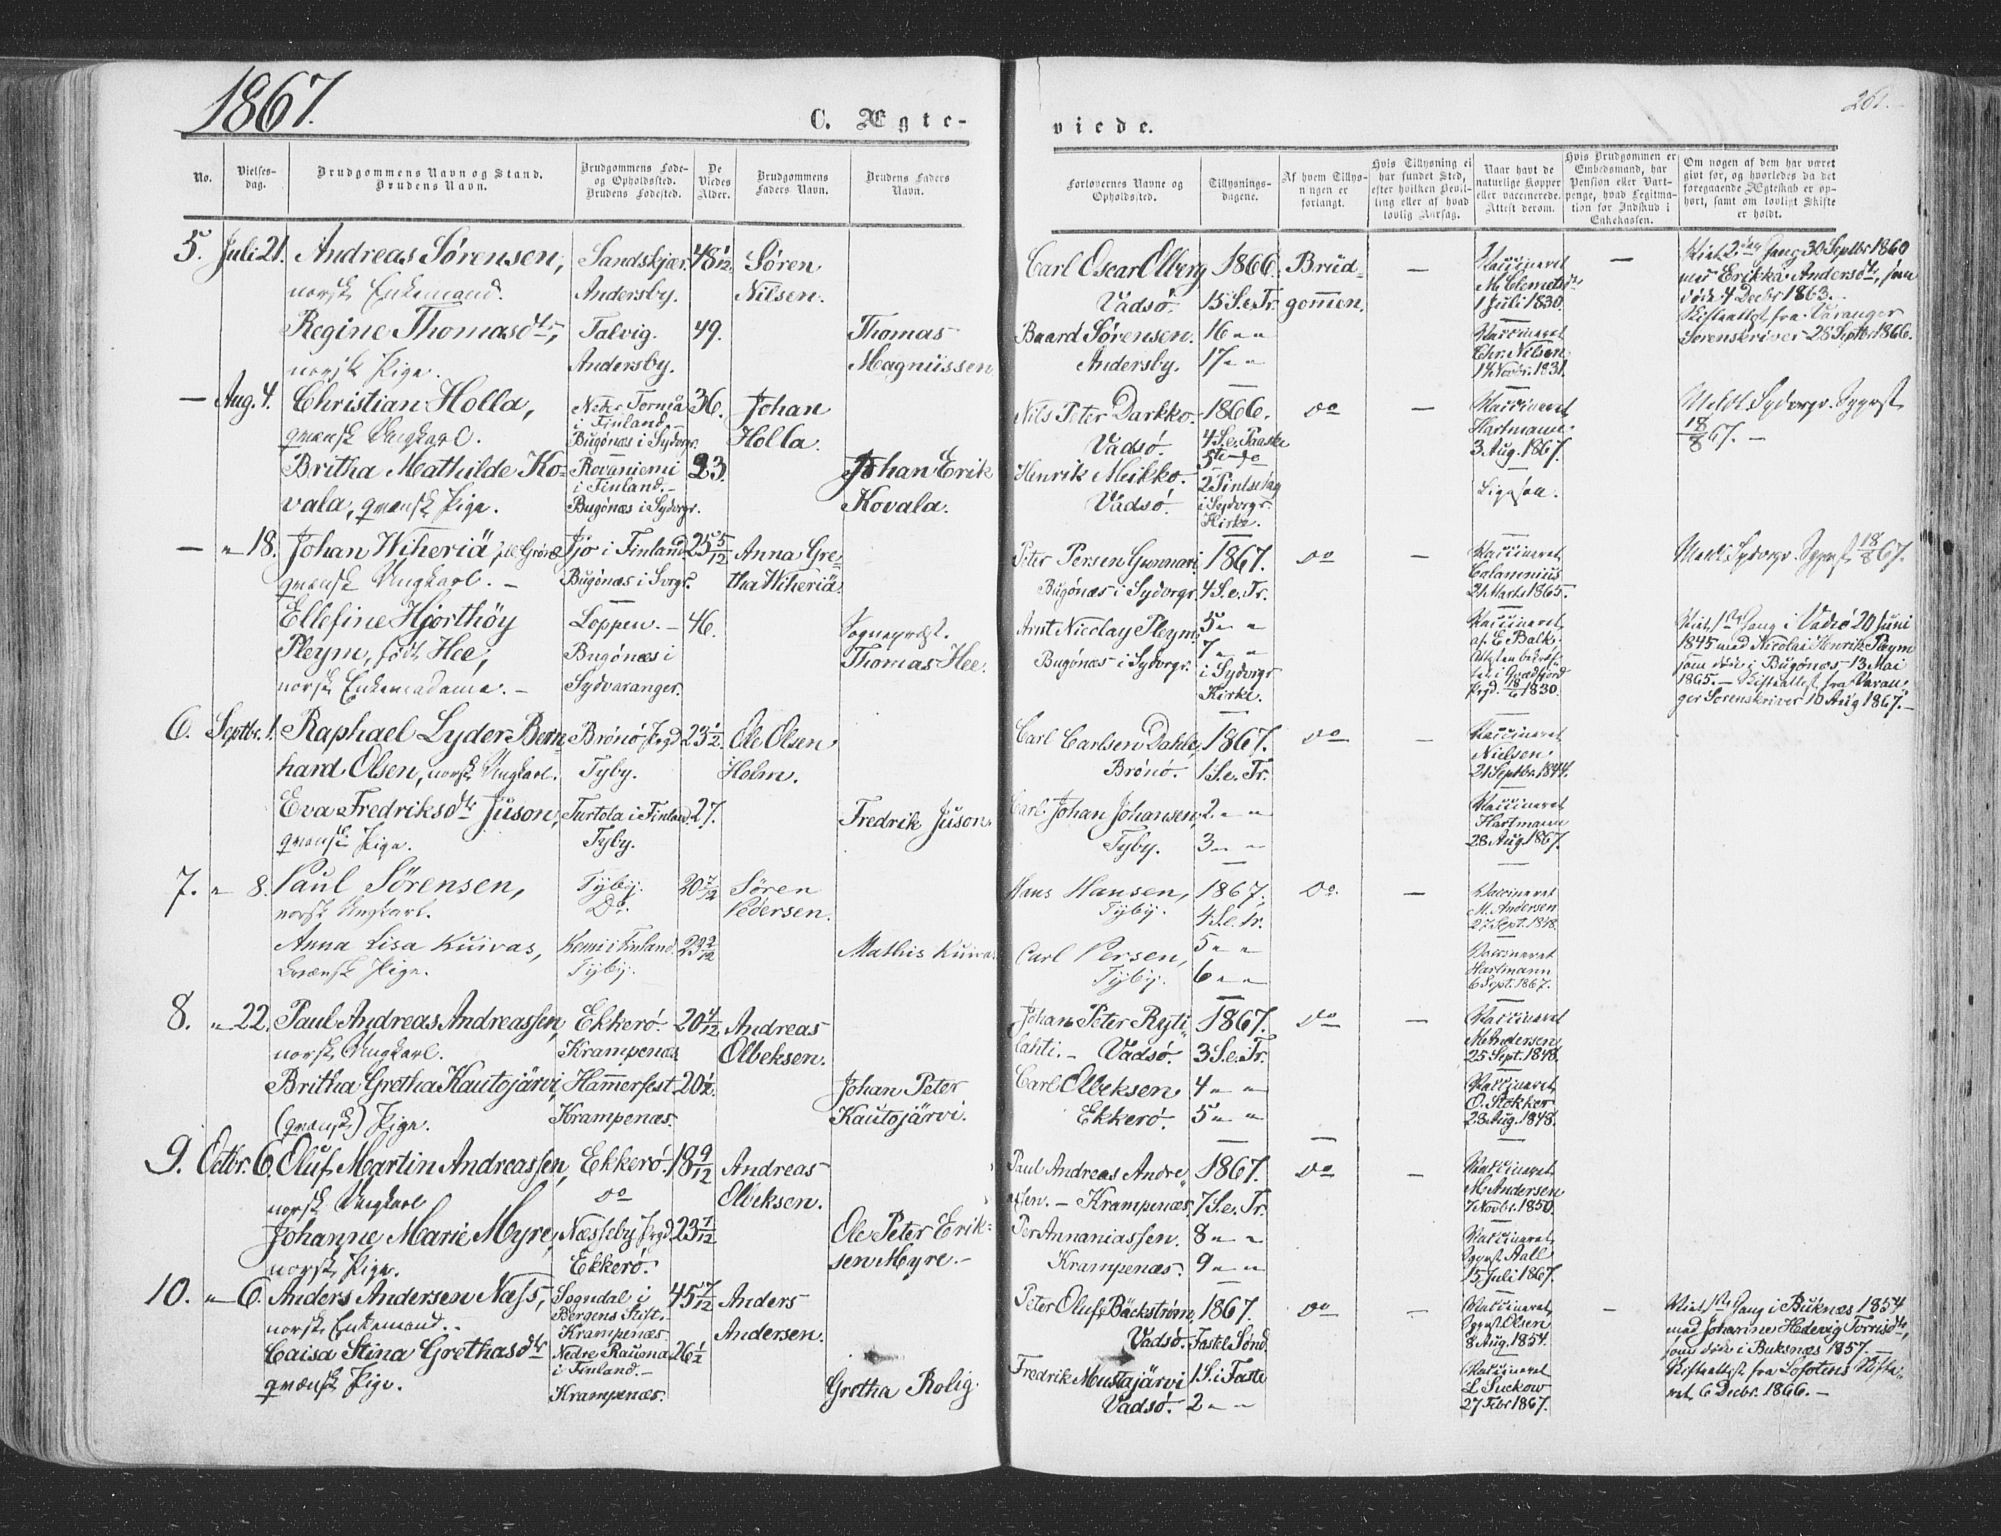 1867.
261.
C. Ægte-
viede.
No.
Vielses-
dag.
Brudgommens Navn og Stand.
Brudens Navn.
Brudgommens Føde-
og Opholdssted.
Brudens Fødested.
De
Viedes
Alder.
Brudgommens
Faders Navn.
Brudens Faders
Navn.
Forlovernes Navne og
Opholdssted.
Tillysnings-
dagene.
Af hvem Tillys-
ningen er
forlangt.
Hvis Tillysning ei
har fundet Sted,
efter hvilken Bevil-
ling eller af hvad
lovlig Aarsag.
Naar havt de
naturlige Kopper
eller vaccinerede.
Attest derom.
Hvis Brudgommen er
Embedsmand, har
Pension eller Vart-
penge, hvad Legitima-
tion for Indskud i
Enkekassen.
Om nogen af dem har været
gift før, og hvorledes da det
foregaaende Ægteskab er op-
hørt, samt om lovligt Skifte
er holdt.
5. Juli 21. Andreas Sørensen, Sandskjær 48 1/12 Søren
norsk Enkemand. Andersby. Nilsen.
Regine Thomasdtr, Talvig. 49. Thomas
norsk Pige. Andersby. Magnussen
Carl Oscar Olberg 1866. Brud- — Vaccineret — Viet 2den Gang 30 Septbr 1860
Vadsø. 15 S.e.Tr. gommen. 1 Juli 1830. med Erikka Andersdtr, som
døde 4 Decbr 1863.
Skifteattest fra Varanger
Baard Sørensen. 16 " " Vaccineret Sorenskriver 28 Septbr 1866.
Andersby. 17 " " Chr. Nilsen
14 Novbr. 1831.
— Aug. 4. Christian Holla, Neder Torneå 36. Johan
i Finland.
qvænsk Ungkarl. Bugønæs i Sydvrgr. Holla.
Britha Mathilde Ko- Rovaniemi 23. Johan Erik
i Finland.
vala, qvænsk Pige. Bugønæs i Sydvrgr. Kovala.
Nils Peter Darkko. 1866. do — Vaccineret Meldt Sydvrgr. Sgprst
Vadsø. 4 S.e. Paaske Hartmann 18/8 67. —
5te do 3 Aug. 1867.
Henrik Meikko. 2 Pintsedag Ligesaa.
Vadsø. i Sydvrgr.
Kirke.
— " 18. Johan Wiheriä Ijo i Finland 25 5/12 Anna Gre-
qvænsk Ungkarl. — Bugønæs i Svrgr. tha Wiheriä.
Ellefine Hjorthøy Loppen. — 46. Sogneprest.
Pleym, født Hee, Bugønæs i Thomas Hee.
norsk Enkemadame. — Sydvaranger.
Peter Persen Gunnari 1867. do — Vaccineret Meldt Sydvrgr. Sgprst 18/8 67.
Bugønæs i Sydvrgr. 4 S.e. Tr. Calamnius
21 Marts 1865.
Arnt Nicolay Pleym 5 " " Vaccineret Viet 1ste Gang i Vadsø 20 Juni
7 " " af E Balk- 1845 med Nicolai Henrik Pleym
Bugønæs i Sydvrgr. i Sydvrgr som døde i Bugønæs 13 Mai
Kirke. 1865. — Skifteattest fra Varan-
18/6 1830. ger Sorenskriver 10 Aug 1867. —
6. Septbr. 1. Raphael Lyder Bern- Brønø Prgd 23 1/2 Ole Olsen
hard Olsen, norsk Ungkarl. Tyby. Holm.
Eva Fredriksdtr Juson, Turtola i Finland. 27. Fredrik Juson.
qvænsk Pige. Tyby.
Carl Carlsen Dahle, 1867. do — Vaccineret
Brønø. 1 S.e. Tr. Nielsen.
21 Septbr. 1844.
Carl Johan Johansen, 2 " " Vaccineret
Tyby. 3 " " Hartmann
28 Aug 1867.
7. " 8. Paul Sørensen, Tyby. 20 Søren
norsk Ungkarl. Do. Pedersen.
Anna Lisa Kuivas, Kemi i Finland. 23 2/12 Mathis Kuivas
Qvænsk Pige. Tyby.
Hans Hansen, 1867. do. — Vaccineret
Tyby. 4 S.e. Tr. M. Andersen
27 Sept. 1848.
Carl Persen, 5 " " Vaccineret
Tyby. 6 " " Hartmann
6 Sept. 1867.
8. " 22. Paul Andreas Andreassen, Ekkerø. 20 4/12 Andreas
norsk Ungkarl. Krampenæs Olbeksen.
Britha Gretha Kautojärvi, Hamerfest 20 1/2. Johan Peter
(qvænsk) Pige. Krampenæs. Kautojärvi.
Johan Peter Ryti- 1867. do — Vaccineret
lahti. — Vadsø. 3 S.e. Tr. M Andersen
25 Sept. 1848.
Carl Olbeksen 4 " " Vaccineret
Ekkerø. 5 " " O. Stokker
23 Aug. 1848.
9. Octbr. 6. Oluf Martin Andreassen, Ekkerø. 18 9/12 Andreas
norsk Ungkarl do Olbeksen.
Johanne Marie Myre, Næsseby Prgd. 23 7/12 Ole Peter Erik-
norsk Pige. Ekkerø. sen Myre. —
Paul Andreas Andre- 1867. do — Vaccineret
assen. — Krampenæs. 7 S.e. Tr. M Andersen
7 Novbr. 1850.
Per Annaniassen. 8 " " Vaccineret
Krampenæs. 9 " " Sgprst Aall
15 Juli 1867.
10. " 6. Anders Andersen Næss, Sogndal i 45 7/12 Anders
Bergens Stift.
norsk Enkemand. Krampenæs Andersen.
Caisa Stina Grethasdtr Nedre Rauma 26 1/2
i Finland. —
qvænsk Pige. Krampenæs. Gretha Rolig.
Peter Oluf Bäckström 1867. do — Vaccineret — Viet 1ste Gang i Buknæs 1854
Vadsø. Fastel. Sønd. Sgprst Olsen med Johanne Hedevig Torrisdtr,
8 Aug. 1854. som døde i Buksnæs 1857. —
Fredrik Mustajärvi 1 S. i Faste Vaccineret Skifteattest fra Lofotens Skifte-
Vadsø. 2 " " L Suckow ret 6 Decbr. 1866. —
27 Febr 1867.